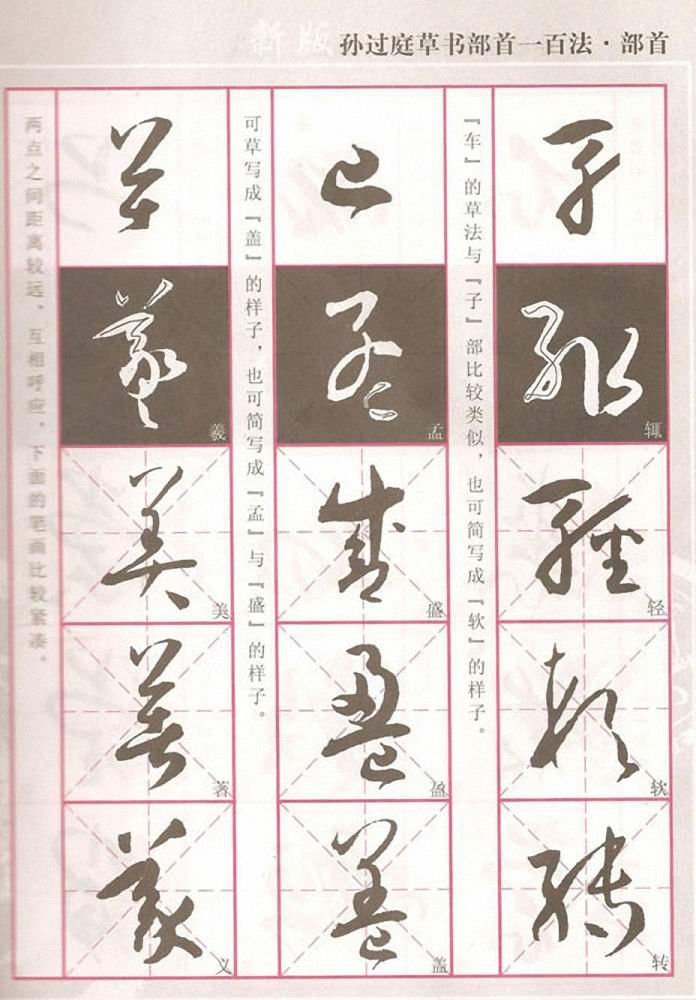 新版 孙过庭草书部首一百法·部首
辄
轻
软
转
『车』的草法与『子』部比较类似，也可简写成『软』的样子。
孟
盛
盈
盖
可草写成『盖』的样子，也可简写成『孟』与『盛』的样子。
羲
美
著
义
两点之间距离较远，互相呼应，下面的笔画比较紧凑。